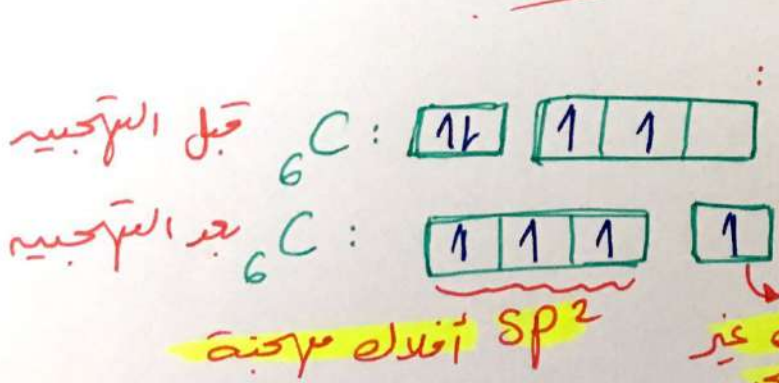 قبل التهجين ₆C : 1L 1 1
بعد التهجين ₆C : 1 1 1 1
أفلاك مهجنة SP²
غير